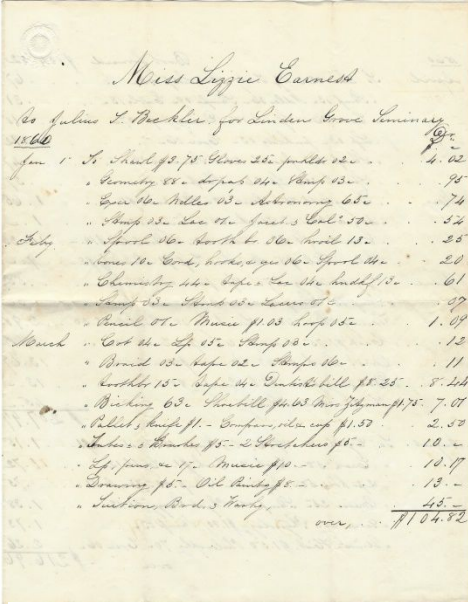 Miss Lizzie Earnest
To Julius S. Beckler, for Linden Grove Seminary
1860 Dr.
Jan 1 To Shawl $3.75 Gloves 25c 02c 4.02
" Geometry 88c 04c Stamp 03c .95
" 06c 03c Astronomy 65c .74
" Stamp 03c Lac 01c & Cal 50c .54
Feby " Spool 06c tooth br 06c 13c .25
" bones 10c Cord, hooks & eyes 06c Spool 04c .20
" Chemistry 44c tape & Lac 04c 13c .61
" 03c 03c 01c .07
" Pencil 01c Music $1.03 hoop 05c 1.09
March " Cot 04c 05c Stamp 03c .12
" Braid 03c tape 02c Stamps 06c .11
" toothbr 15c tape 04c Dentist bill $8.25 8.44
" 63c Shoebill $4.63 $1.75 7.01
" Pallet & knife $1. Compass, oil & cup $1.50 2.50
" Tubes & Brushes $5 2 $5 10.
" pens, & 17c Music $10 10.17
" Drawing $5 Oil Painting $8 13.
" Tuition, Bord. & Washg. 45.
over, $104.82